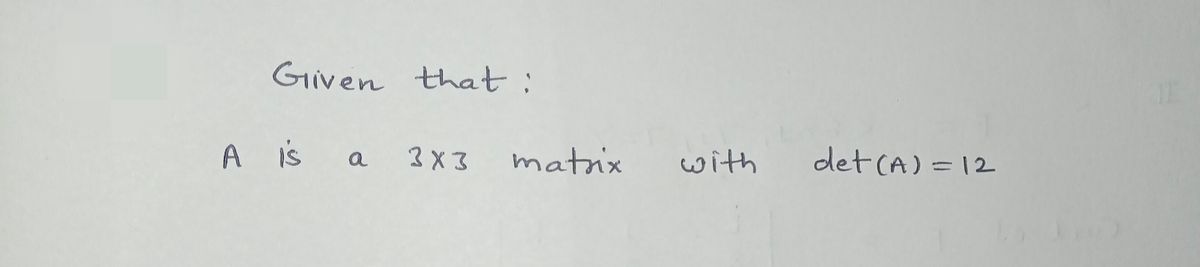 Given that :
A is a 3x3 matrix with det(A) = 12